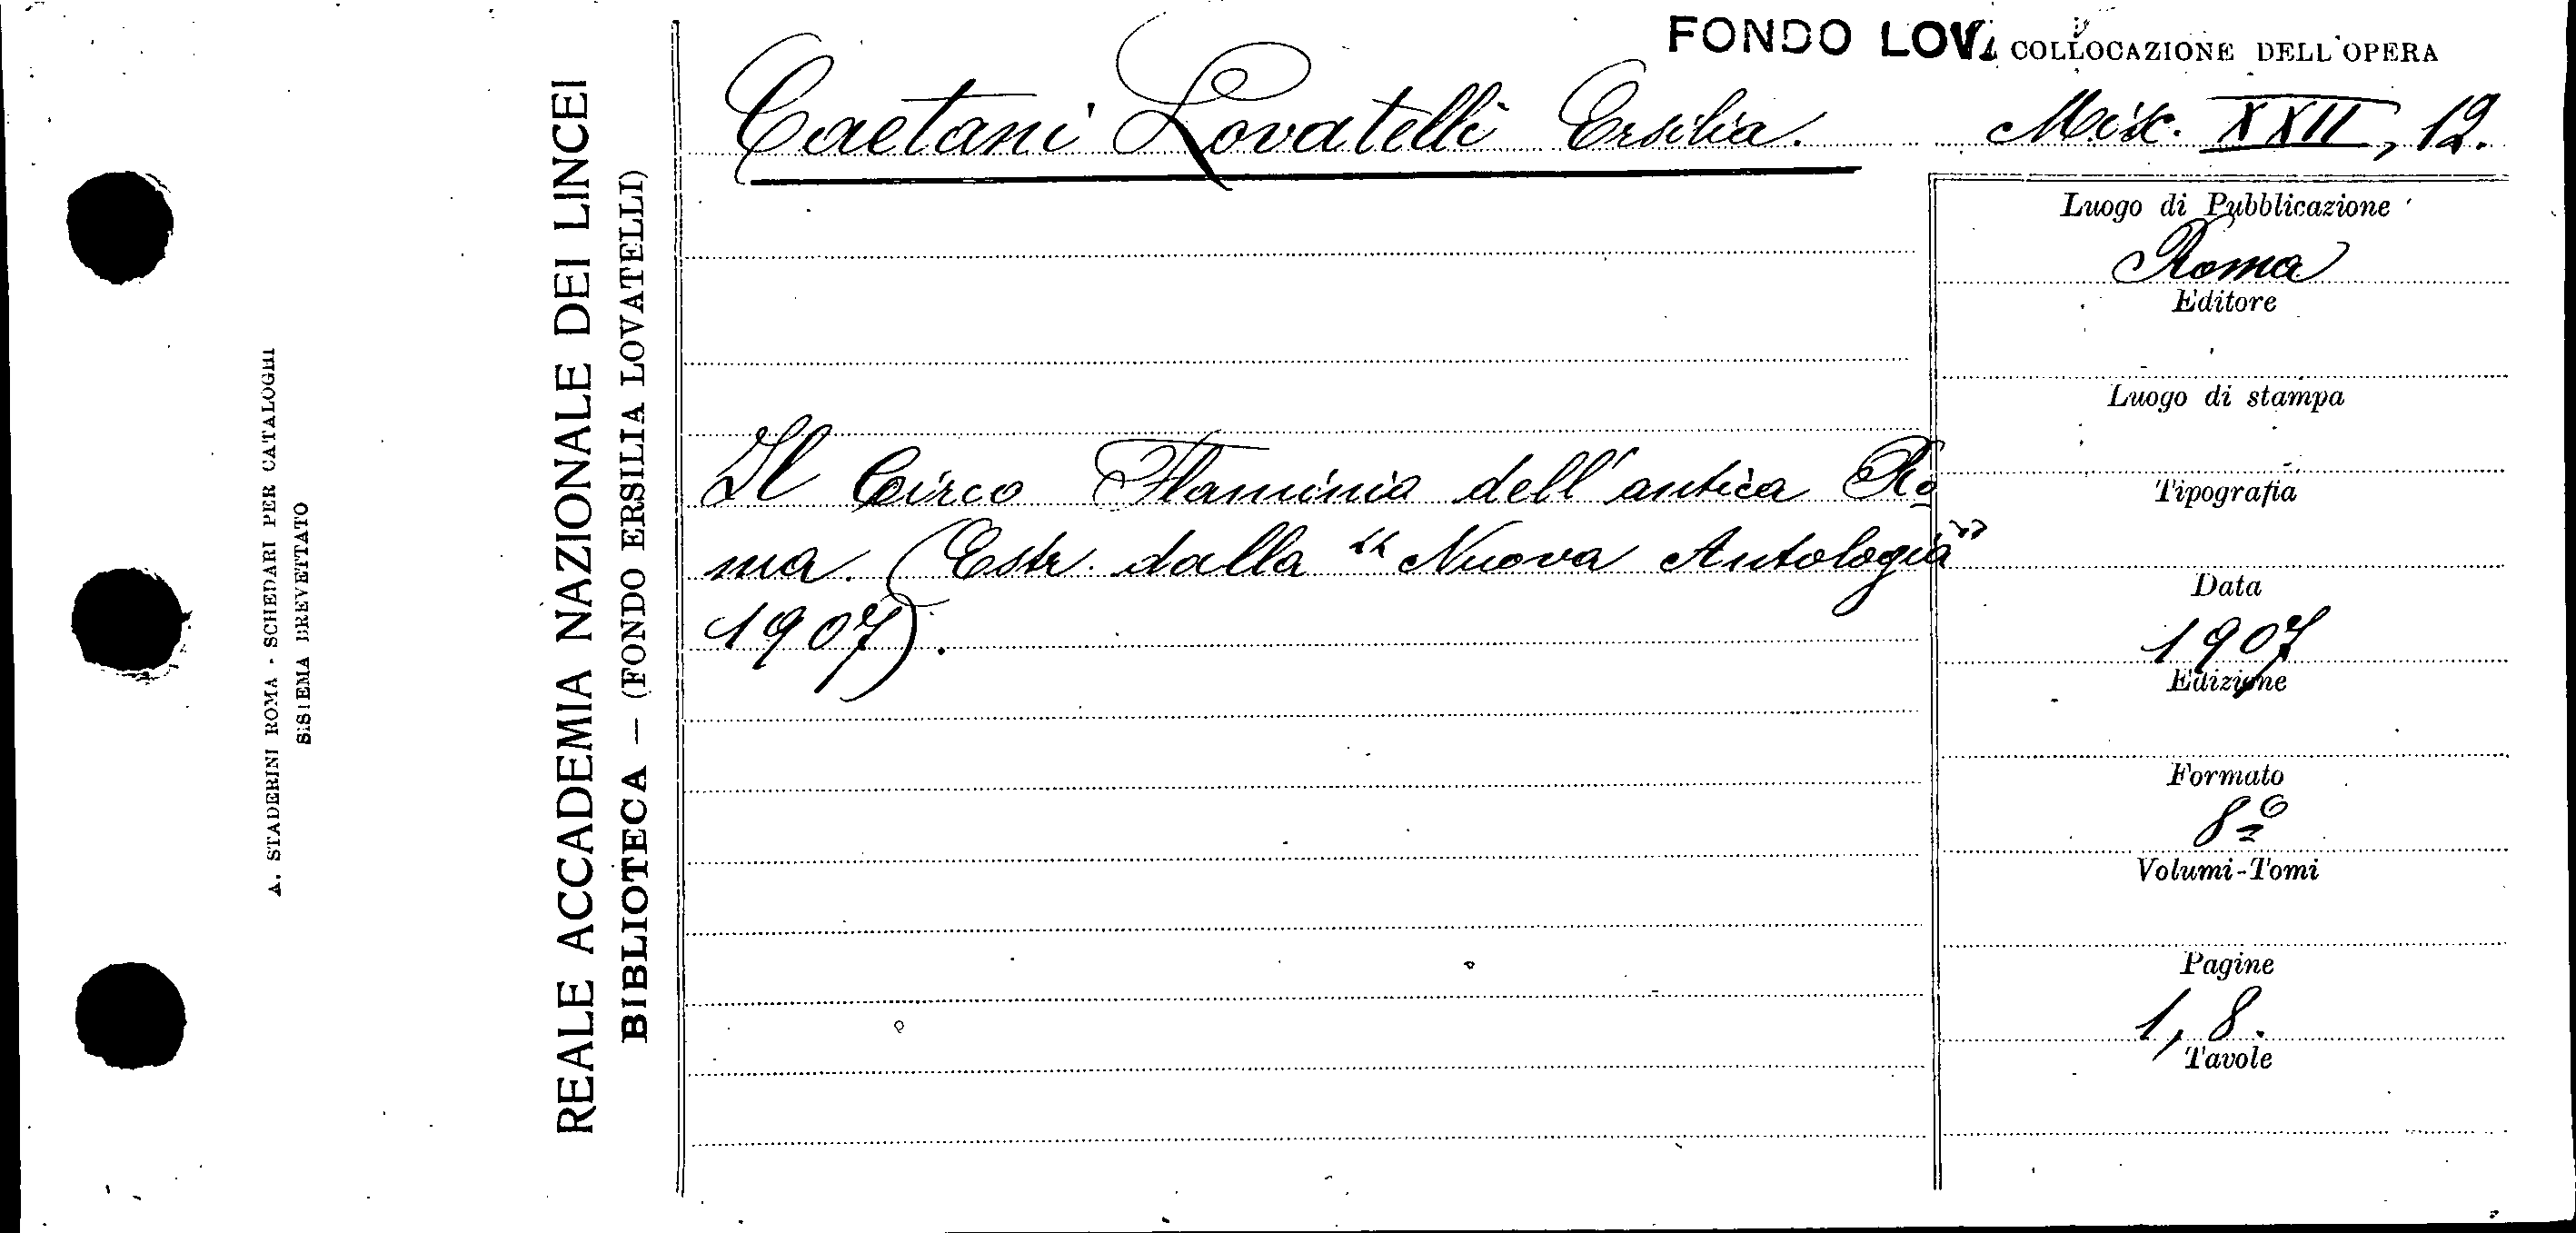 A. STADERINI ROMA - SCHEDARI PER CATALOGHI
SISTEMA BREVETTATO
REALE ACCADEMIA NAZIONALE DEI LINCEI
BIBLIOTECA — (FONDO ERSILIA LOVATELLI)
FONDO LOVA
COLLOCAZIONE DELL'OPERA
Caetani Lovatelli Ersilia.
Misc. XXII, 12.
Il Circo Flaminio dell'antica Ro
ma. (Estr. dalla "Nuova Antologia"
1907).
Luogo di Pubblicazione
Roma
Editore
Luogo di stampa
Tipografia
Data
1907
Edizione
Formato
8º
Volumi-Tomi
Pagine
1, 8.
Tavole